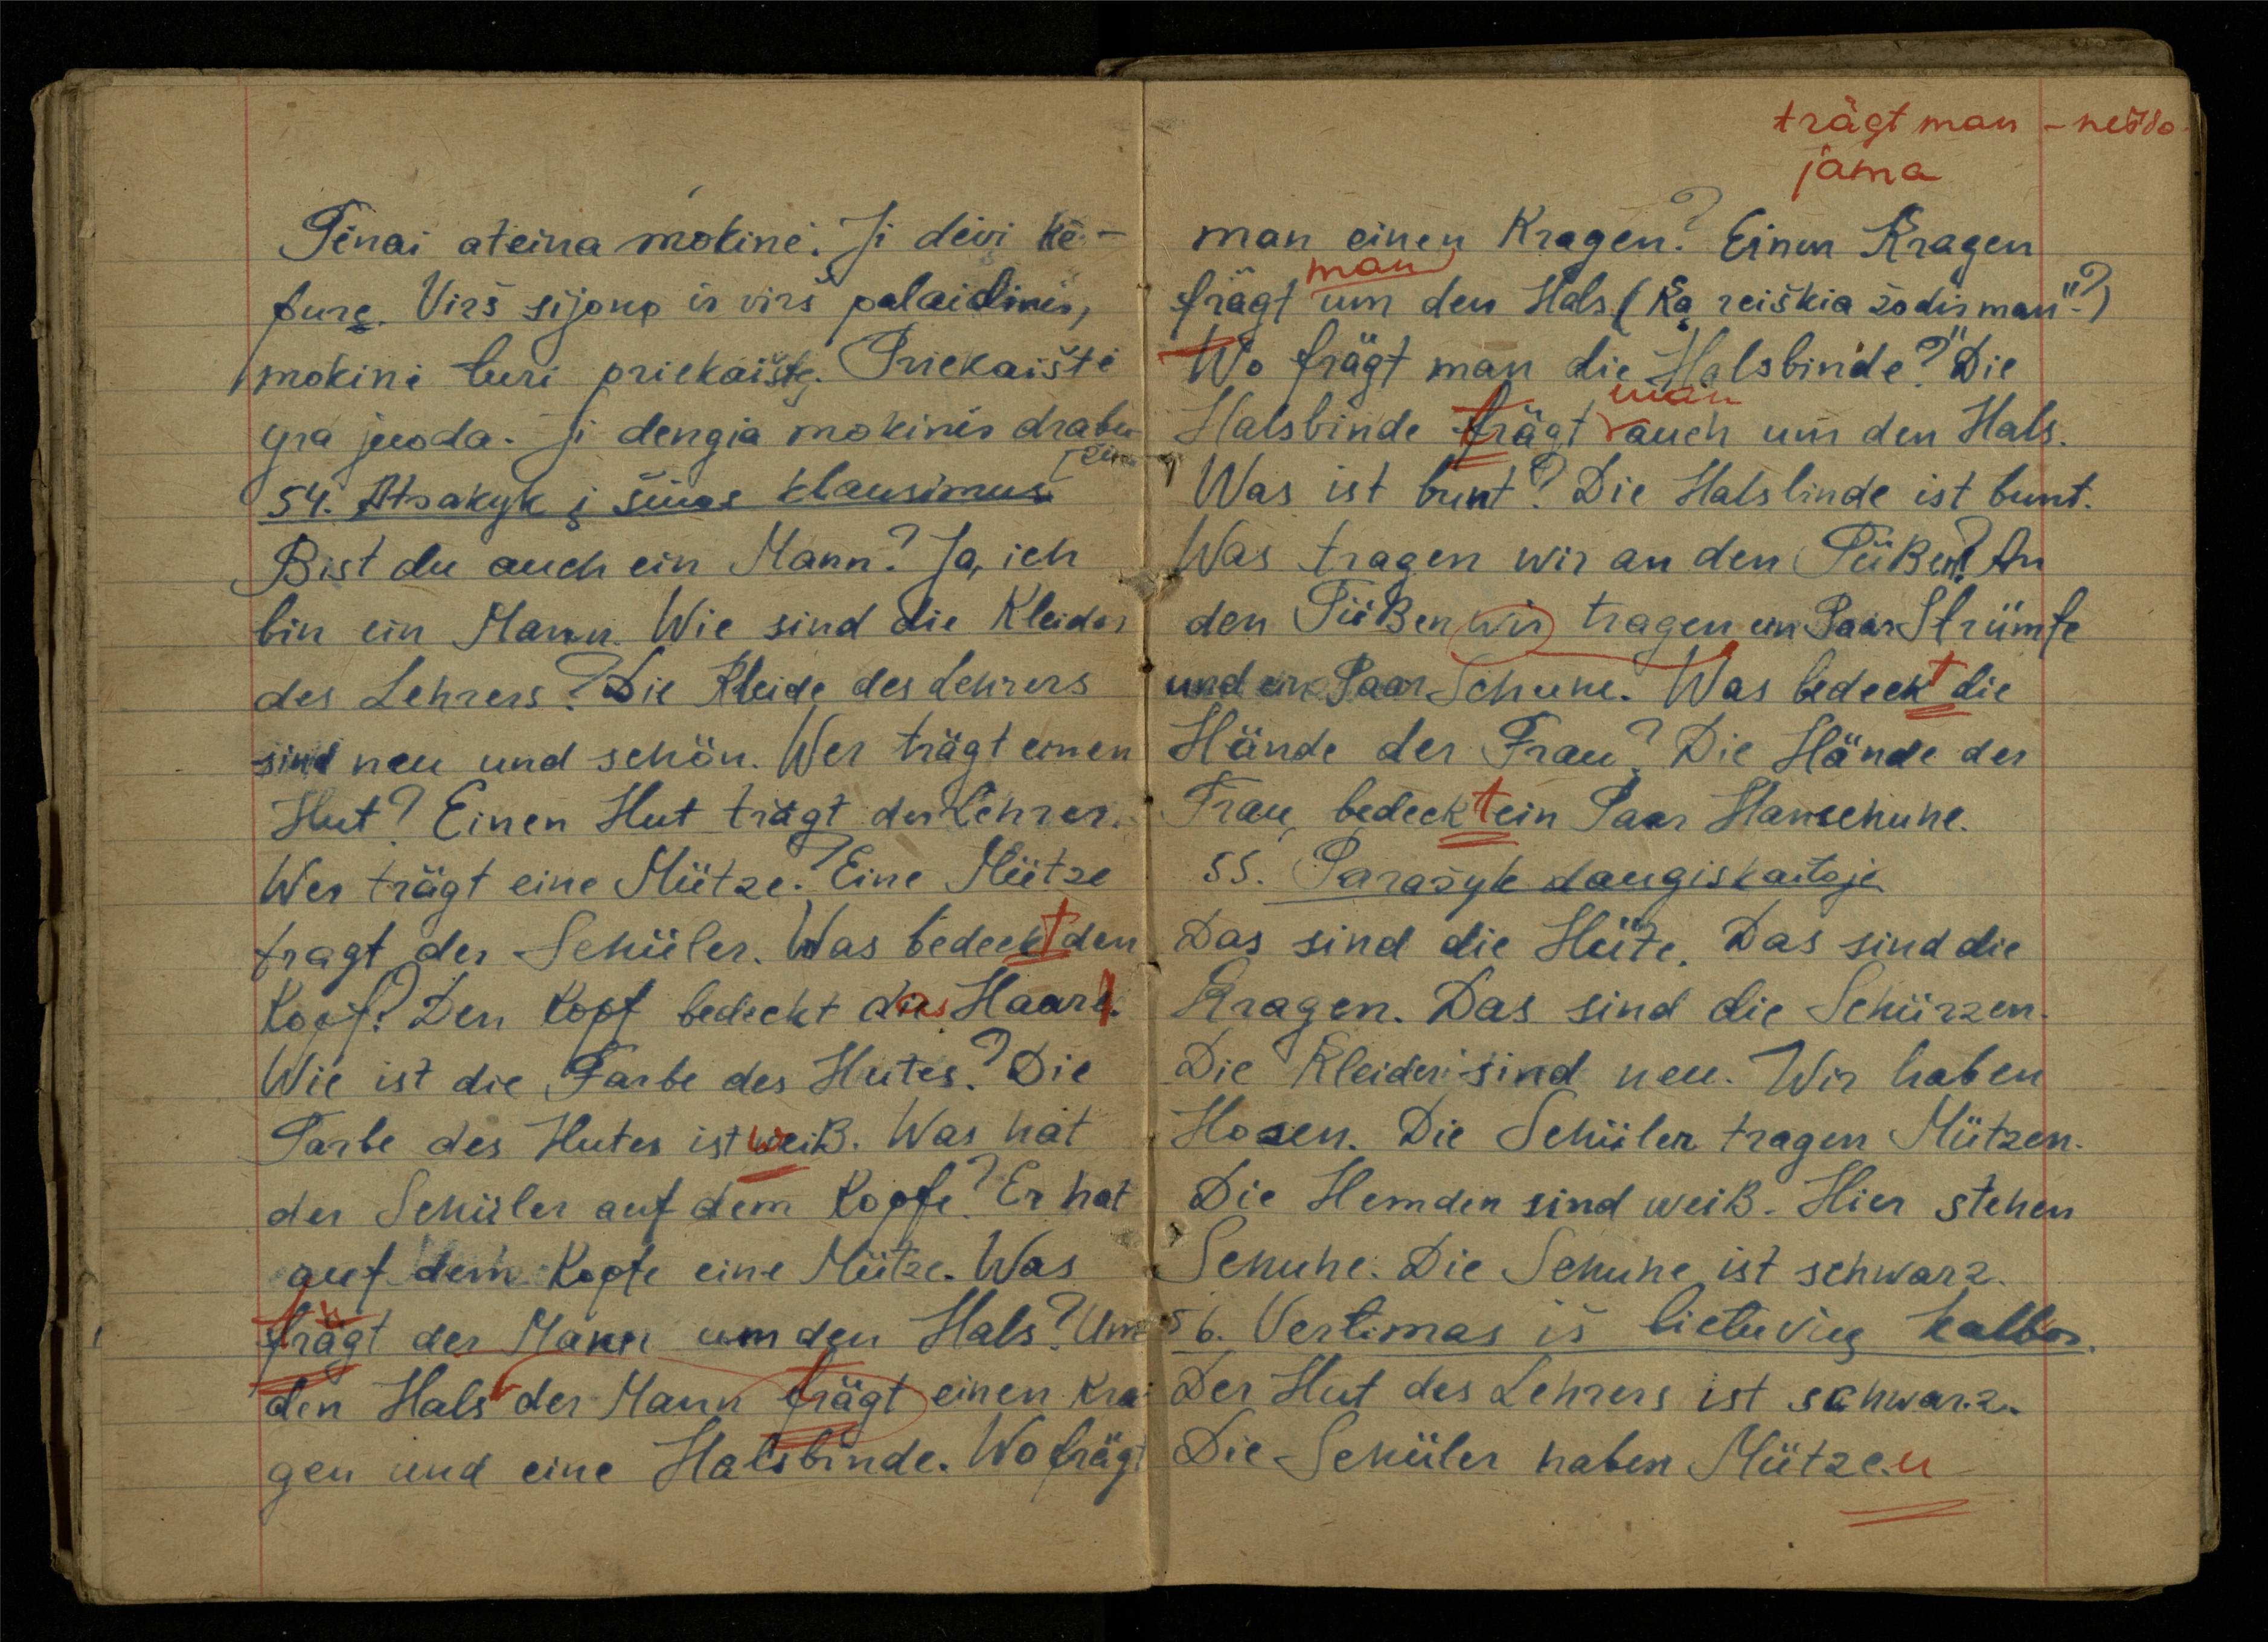 Tenai ateina mokinė. Ji dėvi ke-
purę. Virš sijono ir virš palaidinės,
mokinė turi priekaištę. Priekaištė
yra juoda. Ji dengia mokinės drabu
žius
54. Atsakyk į šiuos klausimus.
Bist du auch ein Mann? Ja, ich
bin ein Mann. Wie sind die Kleider
des Lehrers? Die Kleide des Lehrers
sind neu und schön. Wer trägt einen
Hut? Einen Hut trägt der Lehrer.
Wer trägt eine Mütze? Eine Mütze
tragt der Schüler. Was bedeckt den
Kopf? Den Kopf bedeckt das Haar.
Wie ist die Farbe des Hutes? Die
Farbe des Hutes ist weiß. Was hat
der Schüler auf dem Kopfe? Er hat
auf dem Kopfe eine Mütze. Was
trägt der Mann um den Hals? Um
den Hals der Mann trägt einen Kra-
gen und eine Halsbinde. Wo trägt
trägt man - nešio-
jama
man einen Kragen? Einen Kragen
man
trägt um den Hals. (Ką reiškia žodis man"?)
Wo trägt man die Halsbinde?" Die
man
Halsbinde trägt auch um den Hals.
Was ist bunt? Die Halsbinde ist bunt.
Was tragen wir an den Füßen? An
den Füßen wir tragen ein Paar Strümfe
und ein Paar Schune. Was bedeckt die
Hände der Frau? Die Hände der
Frau bedeckt ein Paar Hanschuhe.
55. Parašyk daugiskaitoje
Das sind die Hüte. Das sind die
Kragen. Das sind die Schürzen.
Die Kleider sind neu. Wir haben
Hosen. Die Schüler tragen Mützen.
Die Hemden sind weiß. Hier stehen
Schuhe. Die Schuhe ist schwarz.
56. Vertimas iš lietuvių kalbos.
Der Hut des Lehrers ist schwarz.
Die Schüler haben Mützen